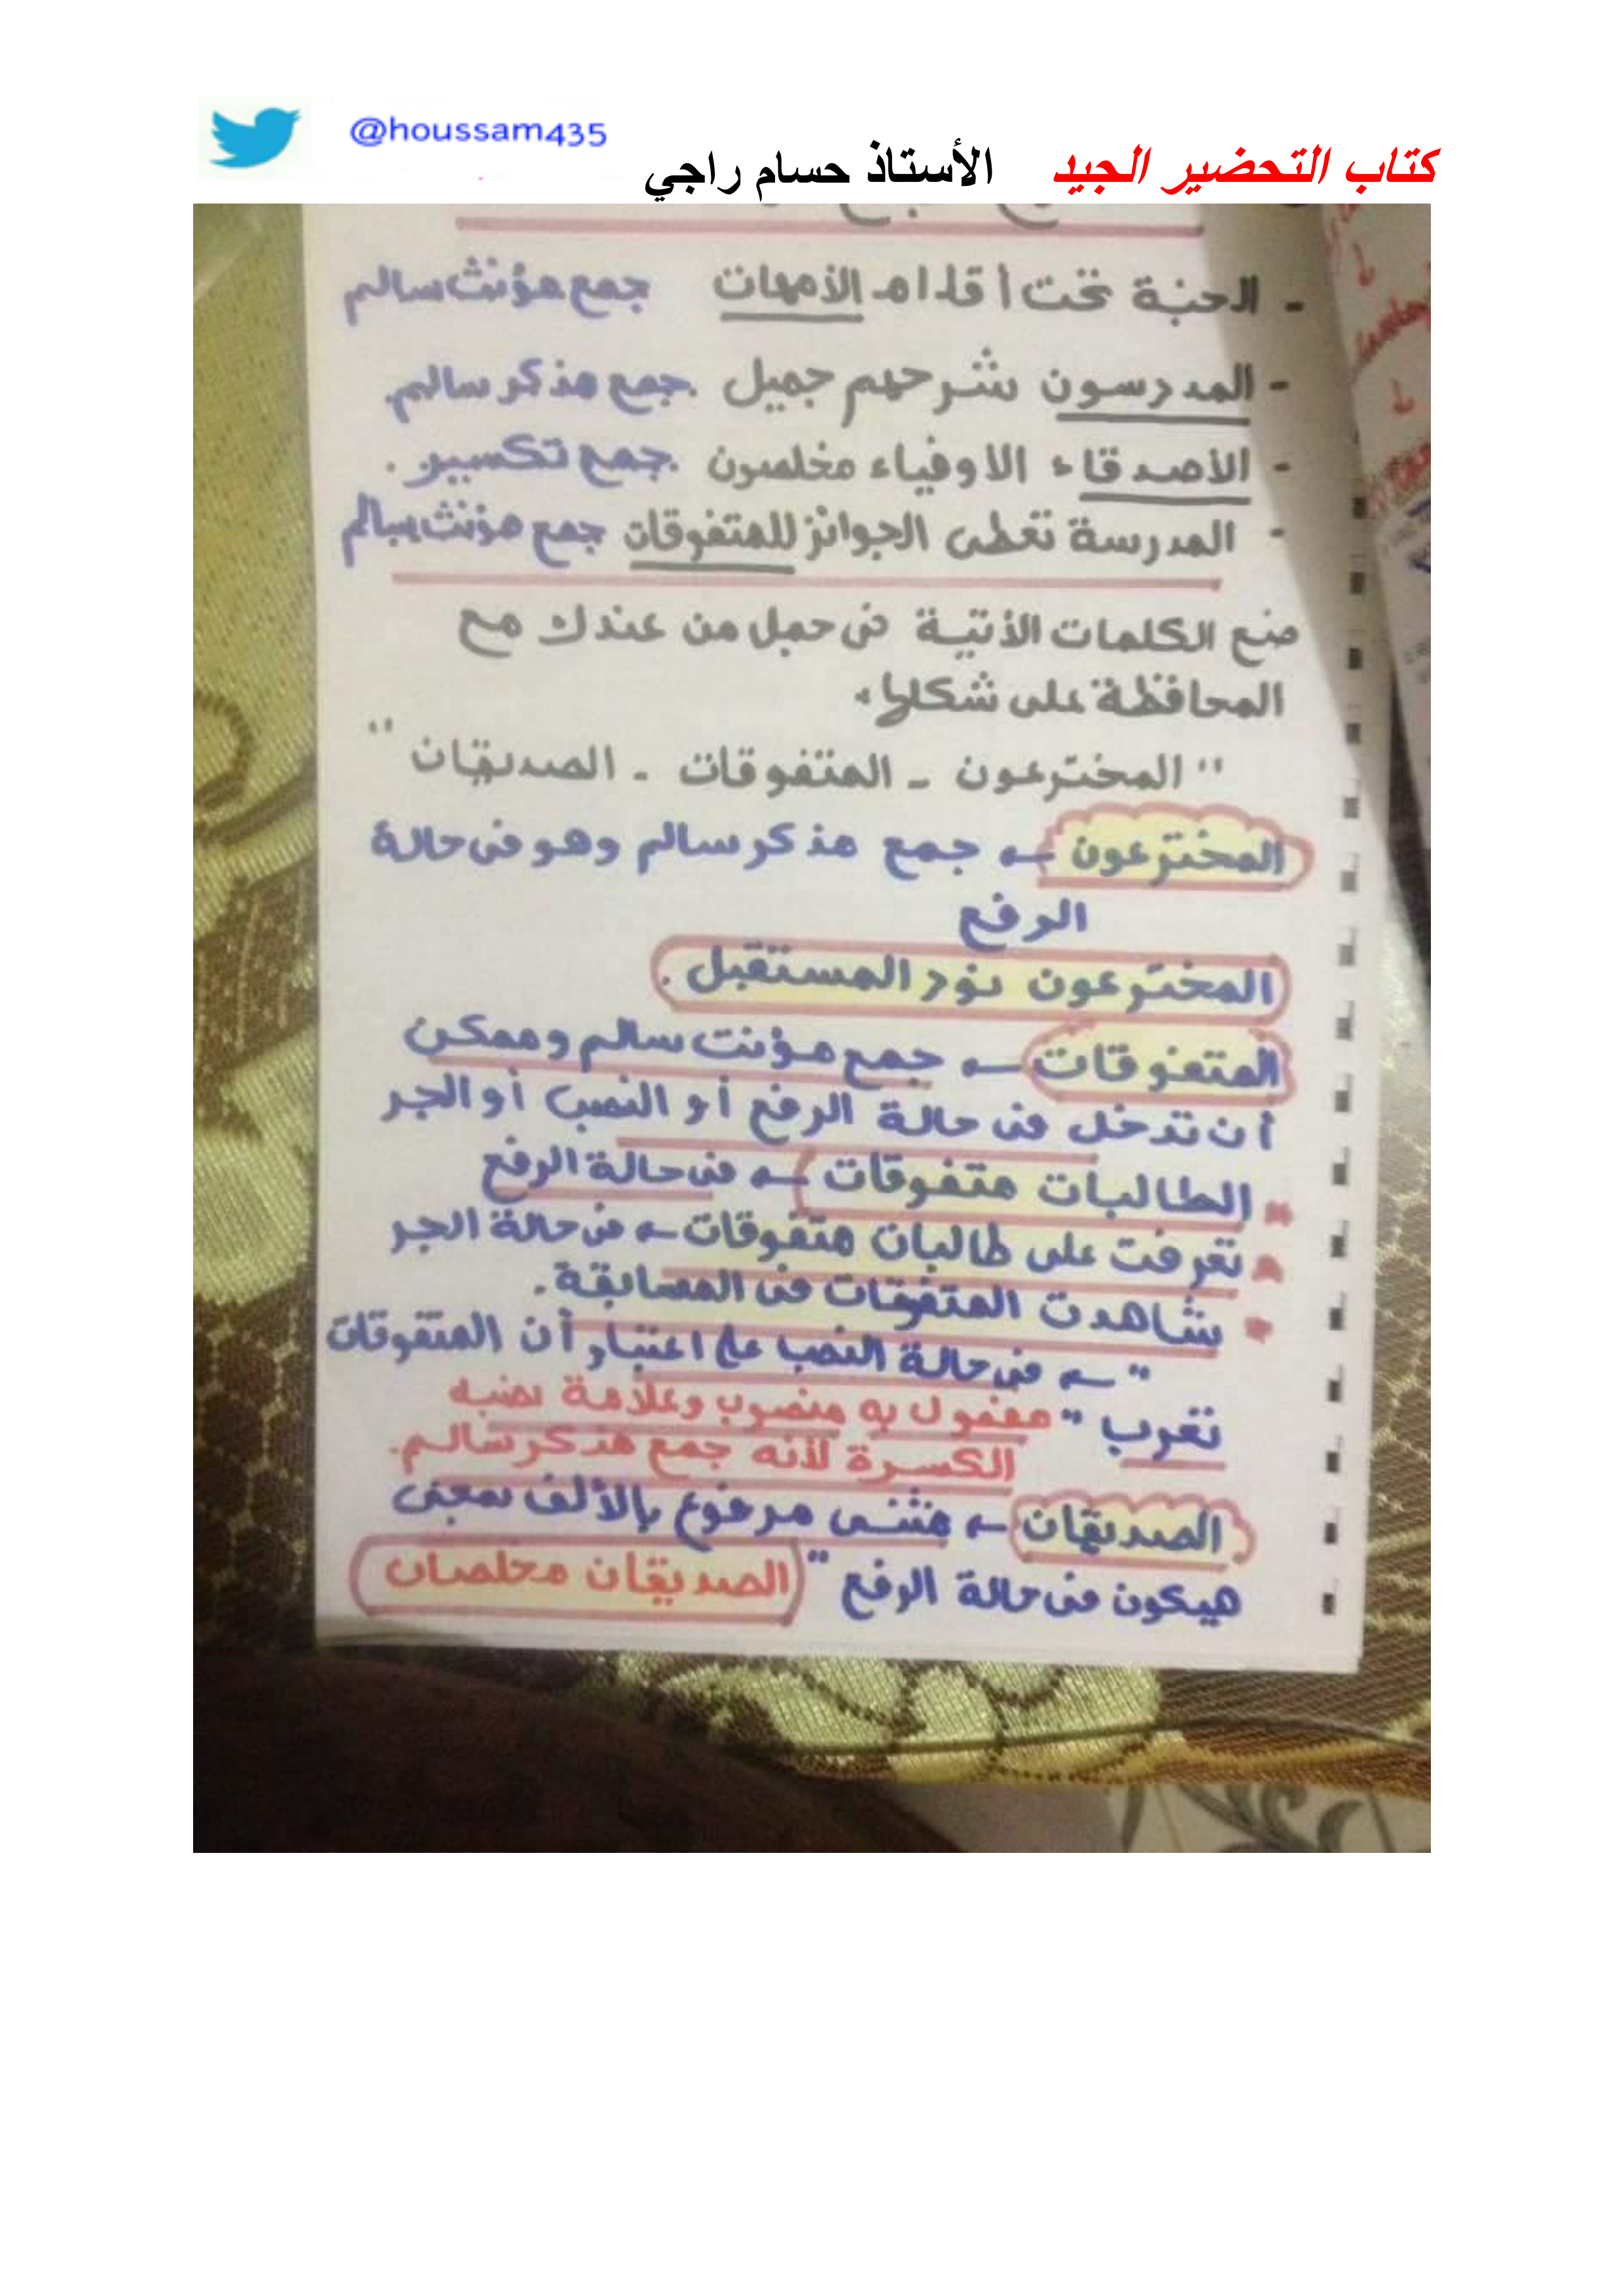 @houssam435
كتاب التحضير الجيد الأستاذ حسام راجي
- الجنة تحت أقدام الأمهات جمع مؤنث سالم
- المدرسون شرحهم جميل . جمع مذكر سالم.
- الأصدقاء الأوفياء مخلصون . جمع تكسير .
- المدرسة تعطى الجوائز للمتفوقات جمع مؤنث سالم
ضع الكلمات الأتية فى جمل من عندك مع
المحافظة على شكلها .
" المخترعون - المتفوقات - الصديقان "
المخترعون ← جمع مذكر سالم وهو فى حالة
الرفع
المخترعون نور المستقبل .
المتفوقات ← جمع مؤنت سالم وممكن
أن تدخل فى حالة الرفع أو النصب أو الجر
الطالبات متفوقات ← فى حالة الرفع
تعرفت على طالبات متفوقات ← فى حالة الجر
شاهدت المتفوقات فى المسابقة .
" ← فى حالة النصب على اعتبار أن المتفوقات
تعرب " مفعول به منصوب وعلامة نصبه
الكسرة لأنه جمع مذكر سالم.
الصديقان ← مثنى مرفوع بالألف بمعنى
هيكون فى حالة الرفع " الصديقان مخلصان